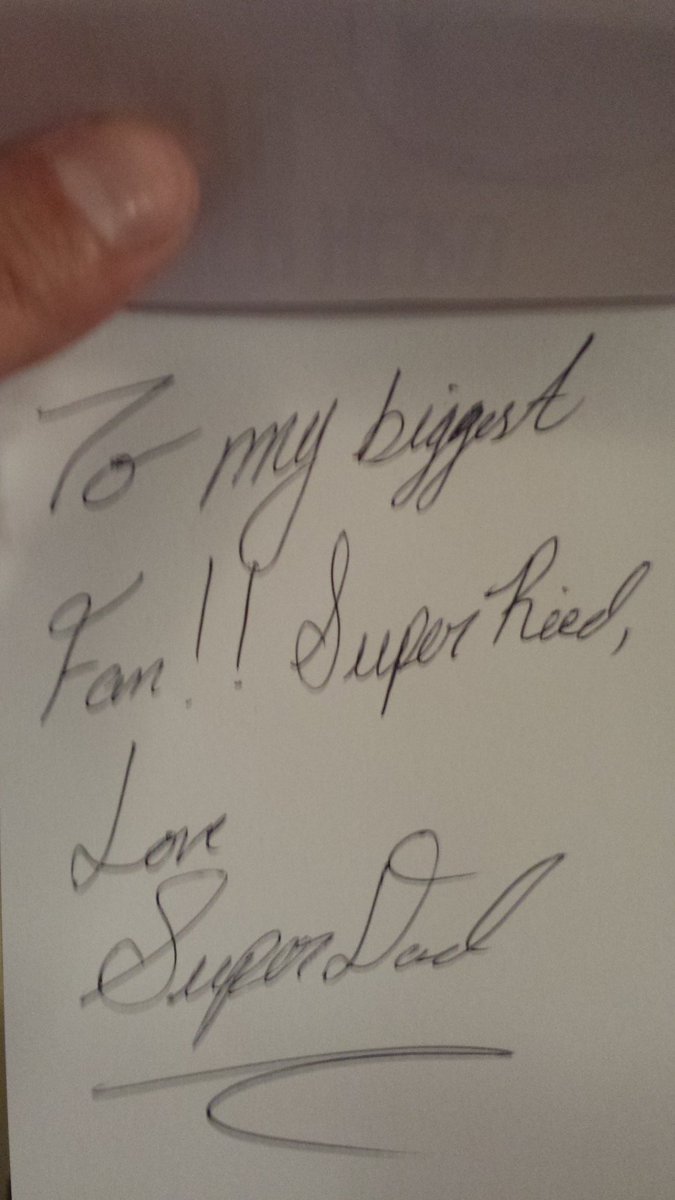 To my biggest
Fan!! Super Reed,
Love
Super Dad